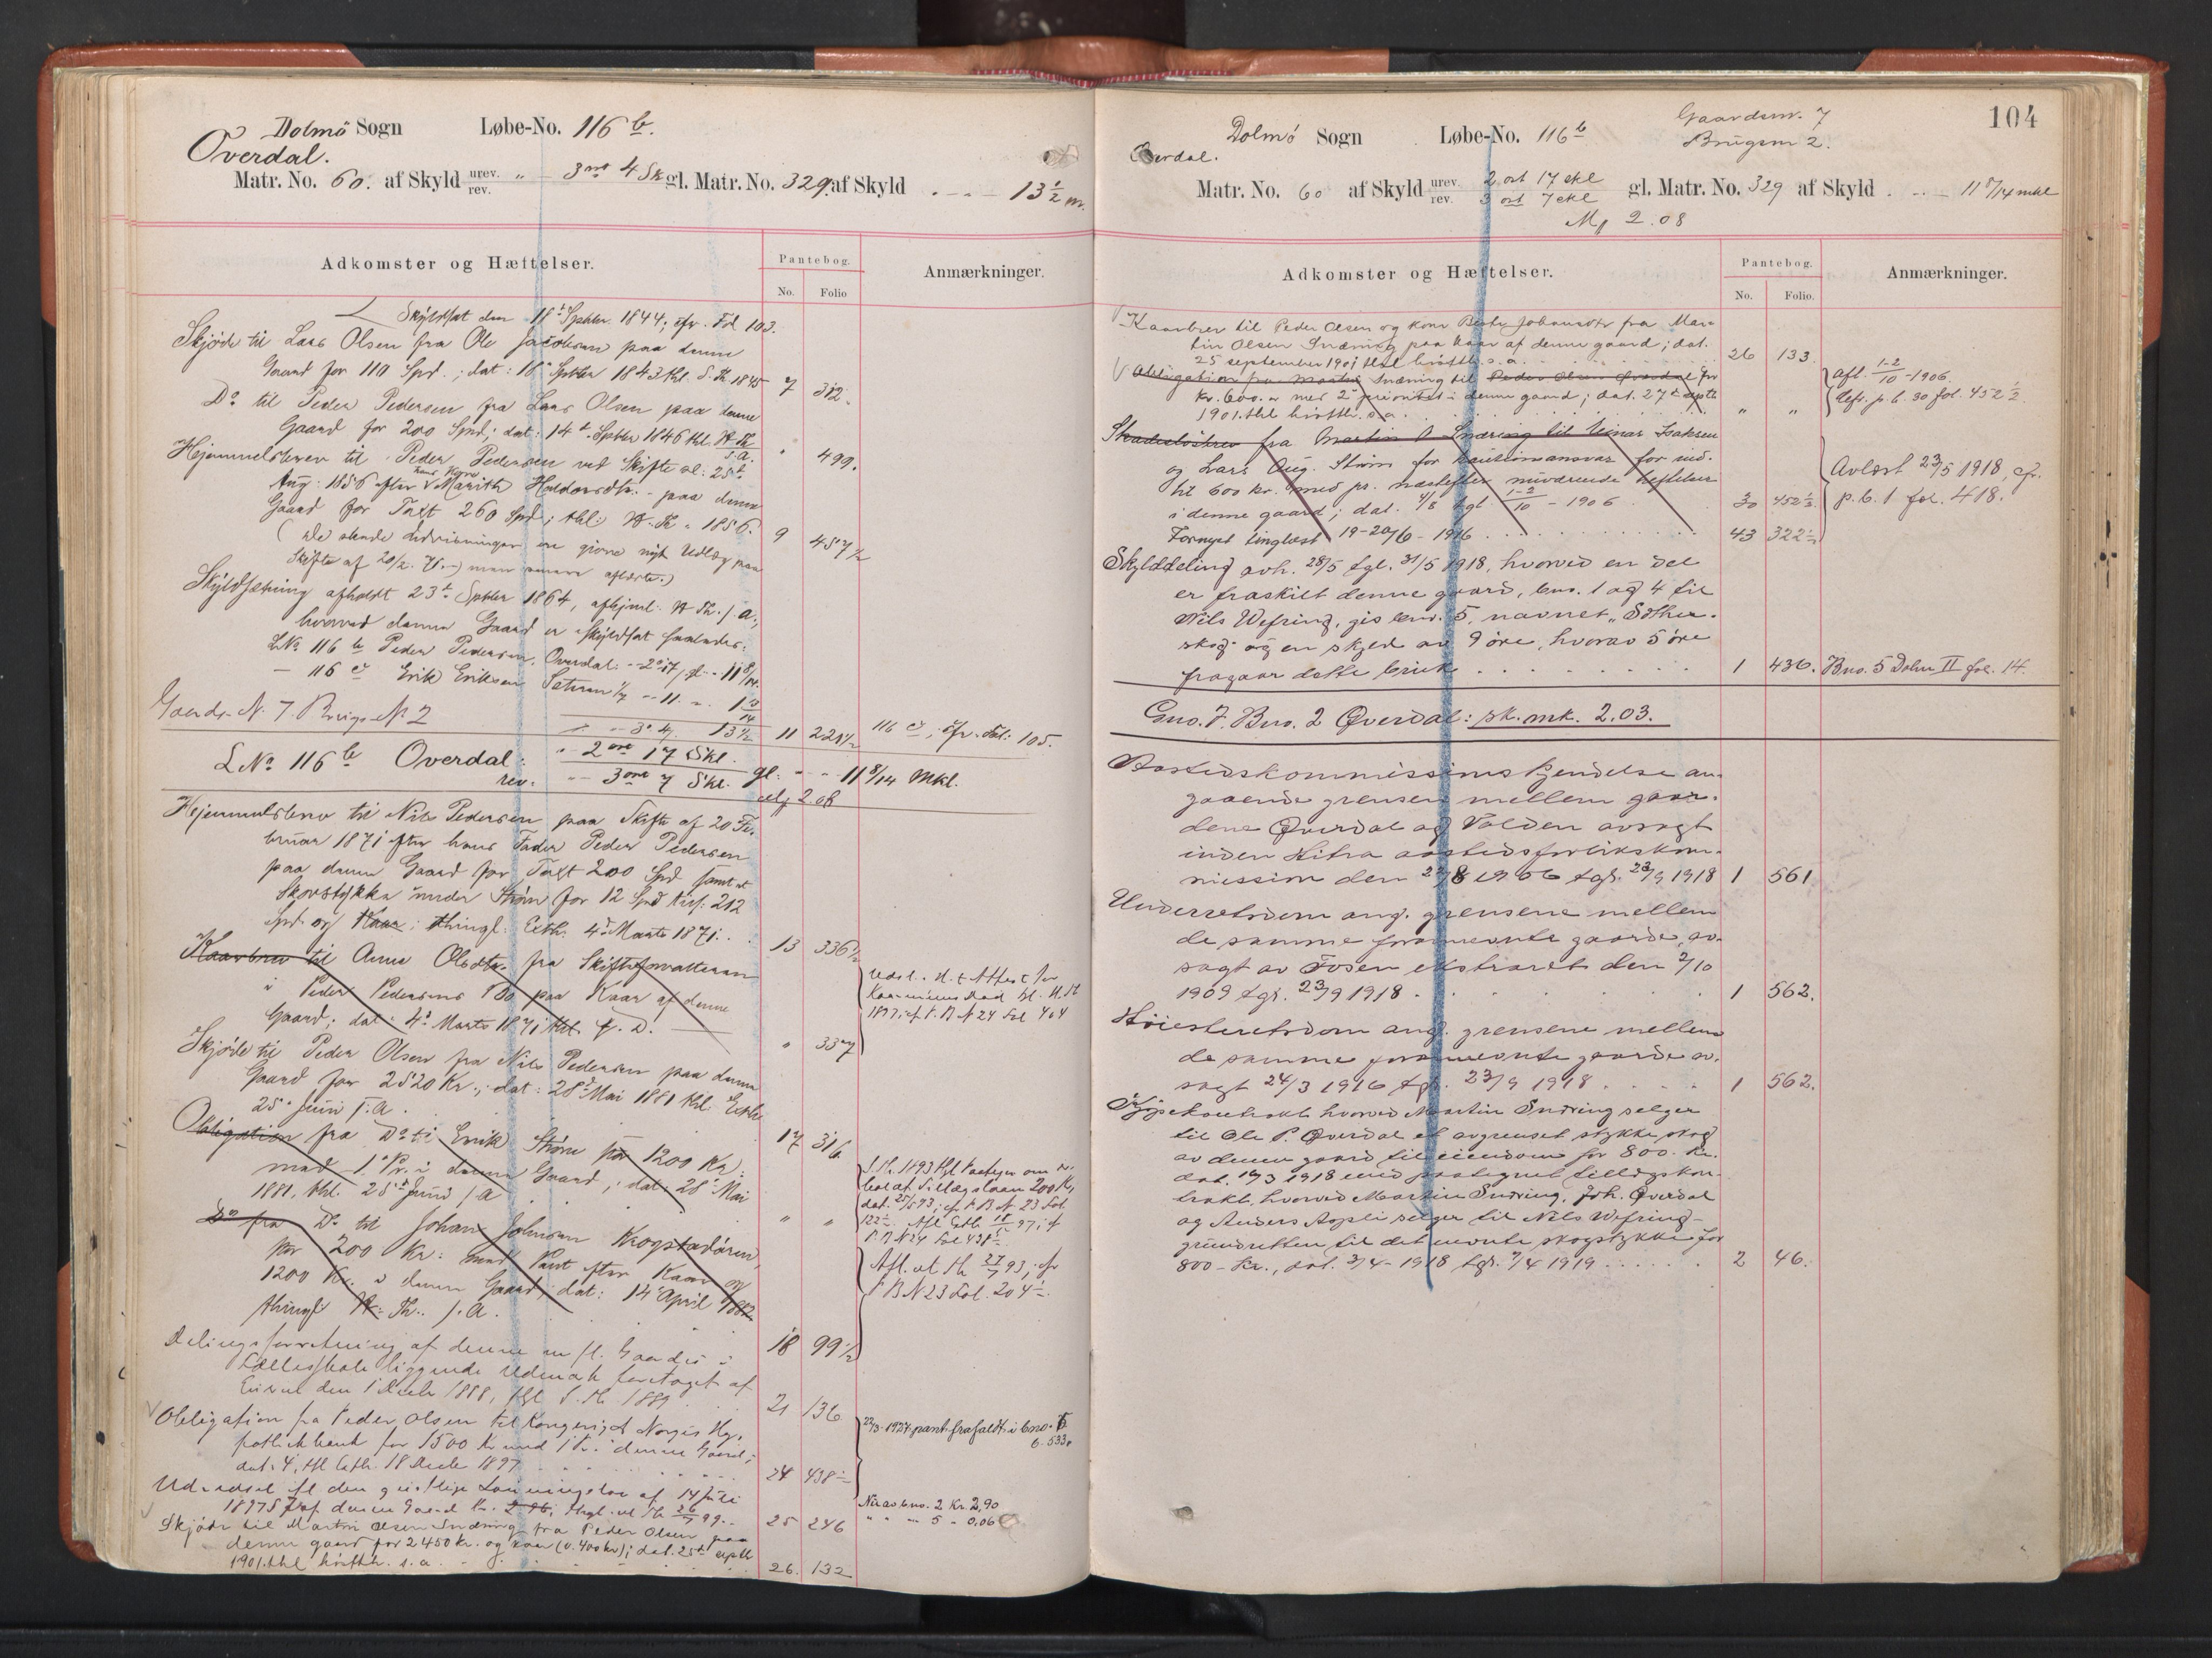 Dolmö Sogn Løbe-No. 116 b.
Overdal.
Matr. No. 60. af Skyld urev. rev. " - 3 ort 4 Sk gl. Matr. No. 329 af Skyld . - - 13 1/2 m.
Adkomster og Hæftelser.
Pantebog.
No. Folio
Anmærkninger.
Skyldsat den 18t Sptbr. 1844; cfr. Fol 103.
Skjöde til Lars Olsen fra Ole Jacobsen paa denne
Gaard for 110 Spd.; dat: 18 Sptbr 1843 thl. S. Th. 1845 7 312.
Do til Peder Pedersen fra Lars Olsen paa denne
Gaard for 200 Spd; dat: 14t Sptbr 1846 thl. H. Th.
s. a. " 499.
Hjemmelsbrev til Peder Pedersen ved Skifte sl: 25t
Aug: 1856 efter hans Kone Marith Haldorsdtr. - paa denne
Gaard for Taxt 260 Spd; thl: H. Th. 1856. 9 457 1/2
Skifte af 20/2. 71.
Skyldsætning afholdt 23t Sptbr 1864, afhjml. H Th. s. a.,
hvorved denne Gaard er skyldsat saaledes:
LNo 116 b Peder Pedersen, Overdal: - 2. 17, gl. - 11 8/14.
- 116 c Erik Eriksen
Gaards-N. 7. Brugs-No 2
- 3. 4. 13 1/2 11 221 1/2 116 c, cfr. Fol: 105.
LNo 116 b Overdal: " 2 ort 17 Skl.
rev. - 3 ort 7 Skl. gl: - - 11 8/14 Mkl.
Mk 2.08
Hjemmelsbrev til Nils Pedersen paa Skifte af 20 Fe-
bruar 1871 efter hans Fader Peder Pedersen
paa denne Gaard for Taxt 200 Spd samt et
Skovstykke under Strøm for 12 Spd tils: 212
Spd og Kaar; thingl: Extr. 4de Marts 1871. . 13 336 1/2
Kaarbrev til Anne Olsdtr. fra Skifteforvalteren
i Peder Pedersens Bo paa Kaar af denne
Gaard; dat: 4de Marts 1871 thl. s. D. " 337
1897, cf. P. B. N 24 Fol 404
Skjöde til Peder Olsen fra Nils Pedersen paa denne
Gaard for 2520 Kr.; dat: 28de Mai 1881 thl. Extr
25de Juni s. a. 17 316
Obligation fra Do til Erik Strøm for 1200 Kr.
med 1. Pr. i denne Gaard; dat: 28de Mai
1881. thl. 25de Juni s. a " "
Do fra Do til Johan Johnsen Krogstadören,
for 200 Kr: med Pant efter Kaar og
1200 Kr. i denne Gaard; dat: 14 April 1882
thingl H. Th. s. A. 18 99 1/2
Afl. vt Th 27/7 93; cfr
P B N 23 Fol. 204
Delingsforretning af denne m fl. Gaarde i
Fællesskab liggende Udmark foretaget af
den 1 Decbr 1888, thgl S. Th 1889 21 136
Obligation fra Peder Olsen til Kongeriget Norges Hy-
pothekbank for 1500 Kr med 1 Pr. i denne Gaard;
dat. 4, thl Extr. 18 Decbr 1897 24 438
22/3-1927 pant. frafaldt i bno. 5
6. 533.
Udredsel if den geistlige Lønningslov af 14 Juli
1897 § 7 af denne Gaard Kr. 2.96, thgl. vt Th 26/7 99. 25 246
Nu av bno. 2 Kr. 2,90
" " - 5 - 0,06
Skjöde til Martin Olsen Snæring fra Peder Olsen paa
denne gaard for 2450 kr. og kaar (v. 400 kr); dat. 25de septbr
1901. thl høstth. s. a. 26. 132
104
Gaardsnr. 7
Brugsnr 2.
Dolmö Sogn Løbe-No. 116 b
Overdal.
Matr. No. 60 af Skyld urev. 2 ort 17 skl rev. 3 ort 7 skl gl. Matr. No. 329 af Skyld . . - 11 8/14 mkl
Mk 2.08
Adkomster og Hæftelser.
Pantebog.
No. Folio.
Anmærkninger.
Kaarbrev til Peder Olsen og kone Johannesdtr fra Mar-
tin Olsen Snæring paa kaar af denne gaard; dat.
25 september 1901 thl høstth. s. a. 26 133
Obligation fra Martin Snæring til Peder Olsen Overdal for
kr. 600.- med 2 prioritet i denne gaard; dat. 27de septbr
1901. thl høstth. s. a. " "
afl. 1-2/10-1906
cfr. p. b. 30 fol. 452 1/2
Skadesløsbrev fra Martin O. Snæring til Einar Isaksen
og Lars Aug. Strøm for kautionsansvar for ind-
til 600 kr. med pr. næstefter nuværende heftelser
i denne gaard; dat. 4/8 tgl. 1-2/10-1906 30 452 1/2
Fornyet tinglæst 19-20/6-1916 43 322 1/2
Avlæst 23/5 1918, cfr.
p. b. 1 fol. 418.
Skylddeling avh. 28/5 tgl. 31/5 1918, hvorved en del
er fraskilt denne gaard, bno. 1 og 4 til
Nils Wefring, gis bno. 5, navnet
skog" og en skyld av 9 öre, hvorav 5 öre
fragaar dette bruk 1 436. Bno. 5 Dolm II fol. 14.
Gno. 7. Bno. 2 Overdal: sk. mk. 2.03.
Aastedskommissions kjendelse an-
gaaende grensen mellem gaar-
dene Overdal og Volden avsagt
inden Hitra aastedsforlikskom-
mission den 22/8 1906 tgl. 23/9 1918 1 561
Underretsdom ang. grensene mellem
de samme forannævnte gaarde av-
sagt av Fosen ekstraret den 2/10
1909 tgl. 23/9 1918 . 1 562.
Høiesteretsdom ang. grensene mellem
de samme forannævnte gaarde av-
sagt 24/3 1916 tgl. 23/9 1918 . 1 562.
Kjøpekontrakt hvorved Martin Snæring selger
til Ole P. Overdal et avgrenset stykke skog
av denne gaard til eiendom for 800. Kr.
dat. 19/3 1918 med paategnet tillægskon-
trakt, hvorved Martin Snæring, Joh. Overdal
og Anders Aspli selger til Nils Wefring
grundretten til det nævnte skogstykke for
800 - Kr., dat. 3/4 - 1918 tgl. 7/4 1919 . 2 46.